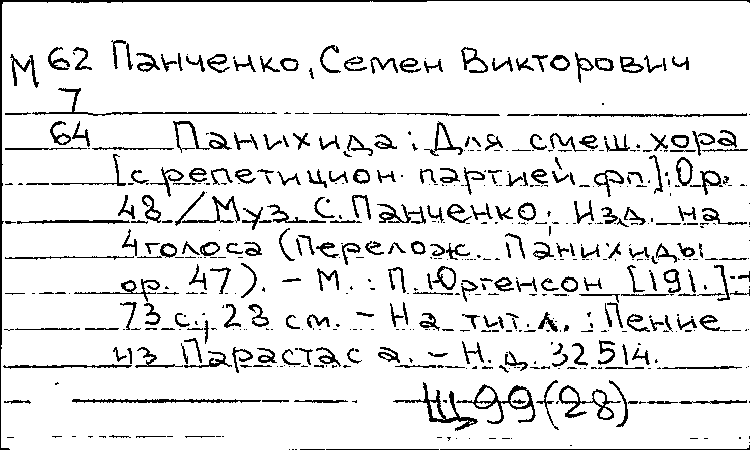 М 62 Панченко, Семен Викторович
7
64 Панихида: Для смеш. хора
[с репетицион. партией фп.]: Ор.
48 / Муз. С. Панченко; Изд. на
4 голоса (Перелож. Панихиды
ор. 47). – М. : П. Юргенсон, [191.] –
73 с.; 28 см. – На тит. л. : Пение
из Парастаса. – Н. д. 32514.
Щ99(28)